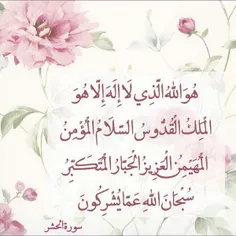 هُوَ اللهُ الَّذِي لَا إِلَهَ إِلَّا هُوَ
الْمَلِكُ الْقُدُّوسُ السَّلَامُ الْمُؤْمِنُ
الْمُهَيْمِنُ الْعَزِيزُ الْجَبَّارُ الْمُتَكَبِّرُ
سُبْحَانَ اللهِ عَمَّا يُشْرِكُونَ
سورة الحشر